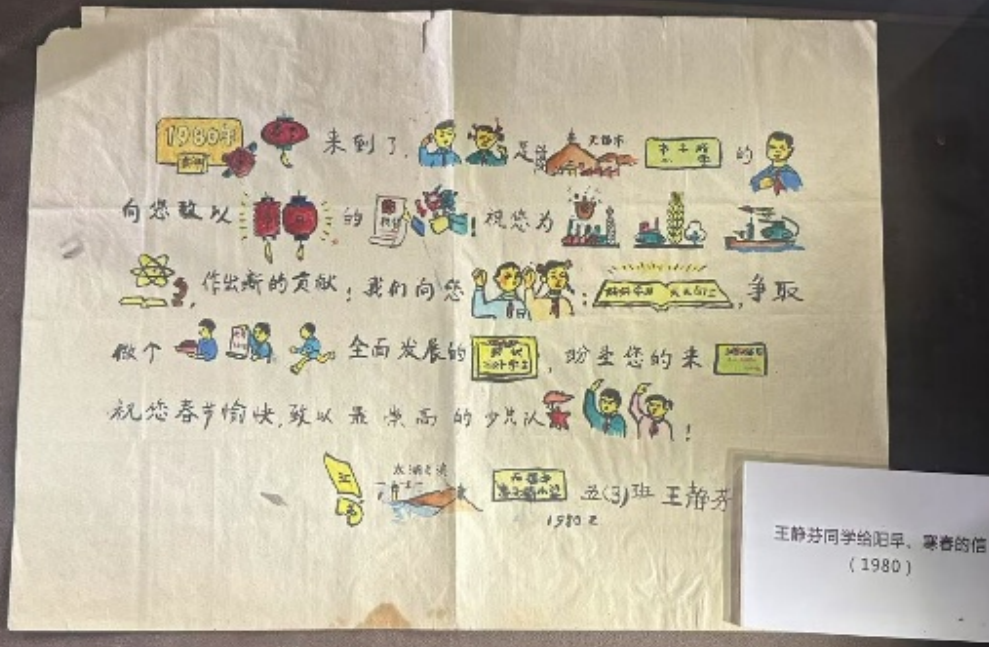 1980年 来到了,是 无锡市 的
向您致以 的 !祝您为
,作出新的贡献!我们向您 : 好好学习 天天向上,争取
做个 全面发展的 ,盼望您的来
祝您春节愉快,致以最崇高的少先队 !
五(3)班 王静芬
1980.2
王静芬同学给阳早、寒春的信
(1980)